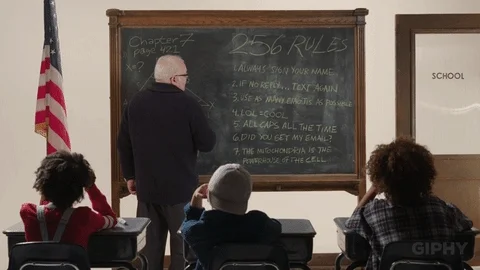 Chapter 7
page 421
x=?
256 RULES
1. ALWAYS SIGN YOUR NAME
2. IF NO REPLY... TEXT AGAIN
3. USE AS MANY EMOTES AS POSSIBLE
4. LOL = COOL
5. ALL CAPS ALL THE TIME
6. DID YOU GET MY EMAIL?
7. THE MITOCHONDRIA IS THE
POWERHOUSE OF THE CELL
SCHOOL
GIPHY